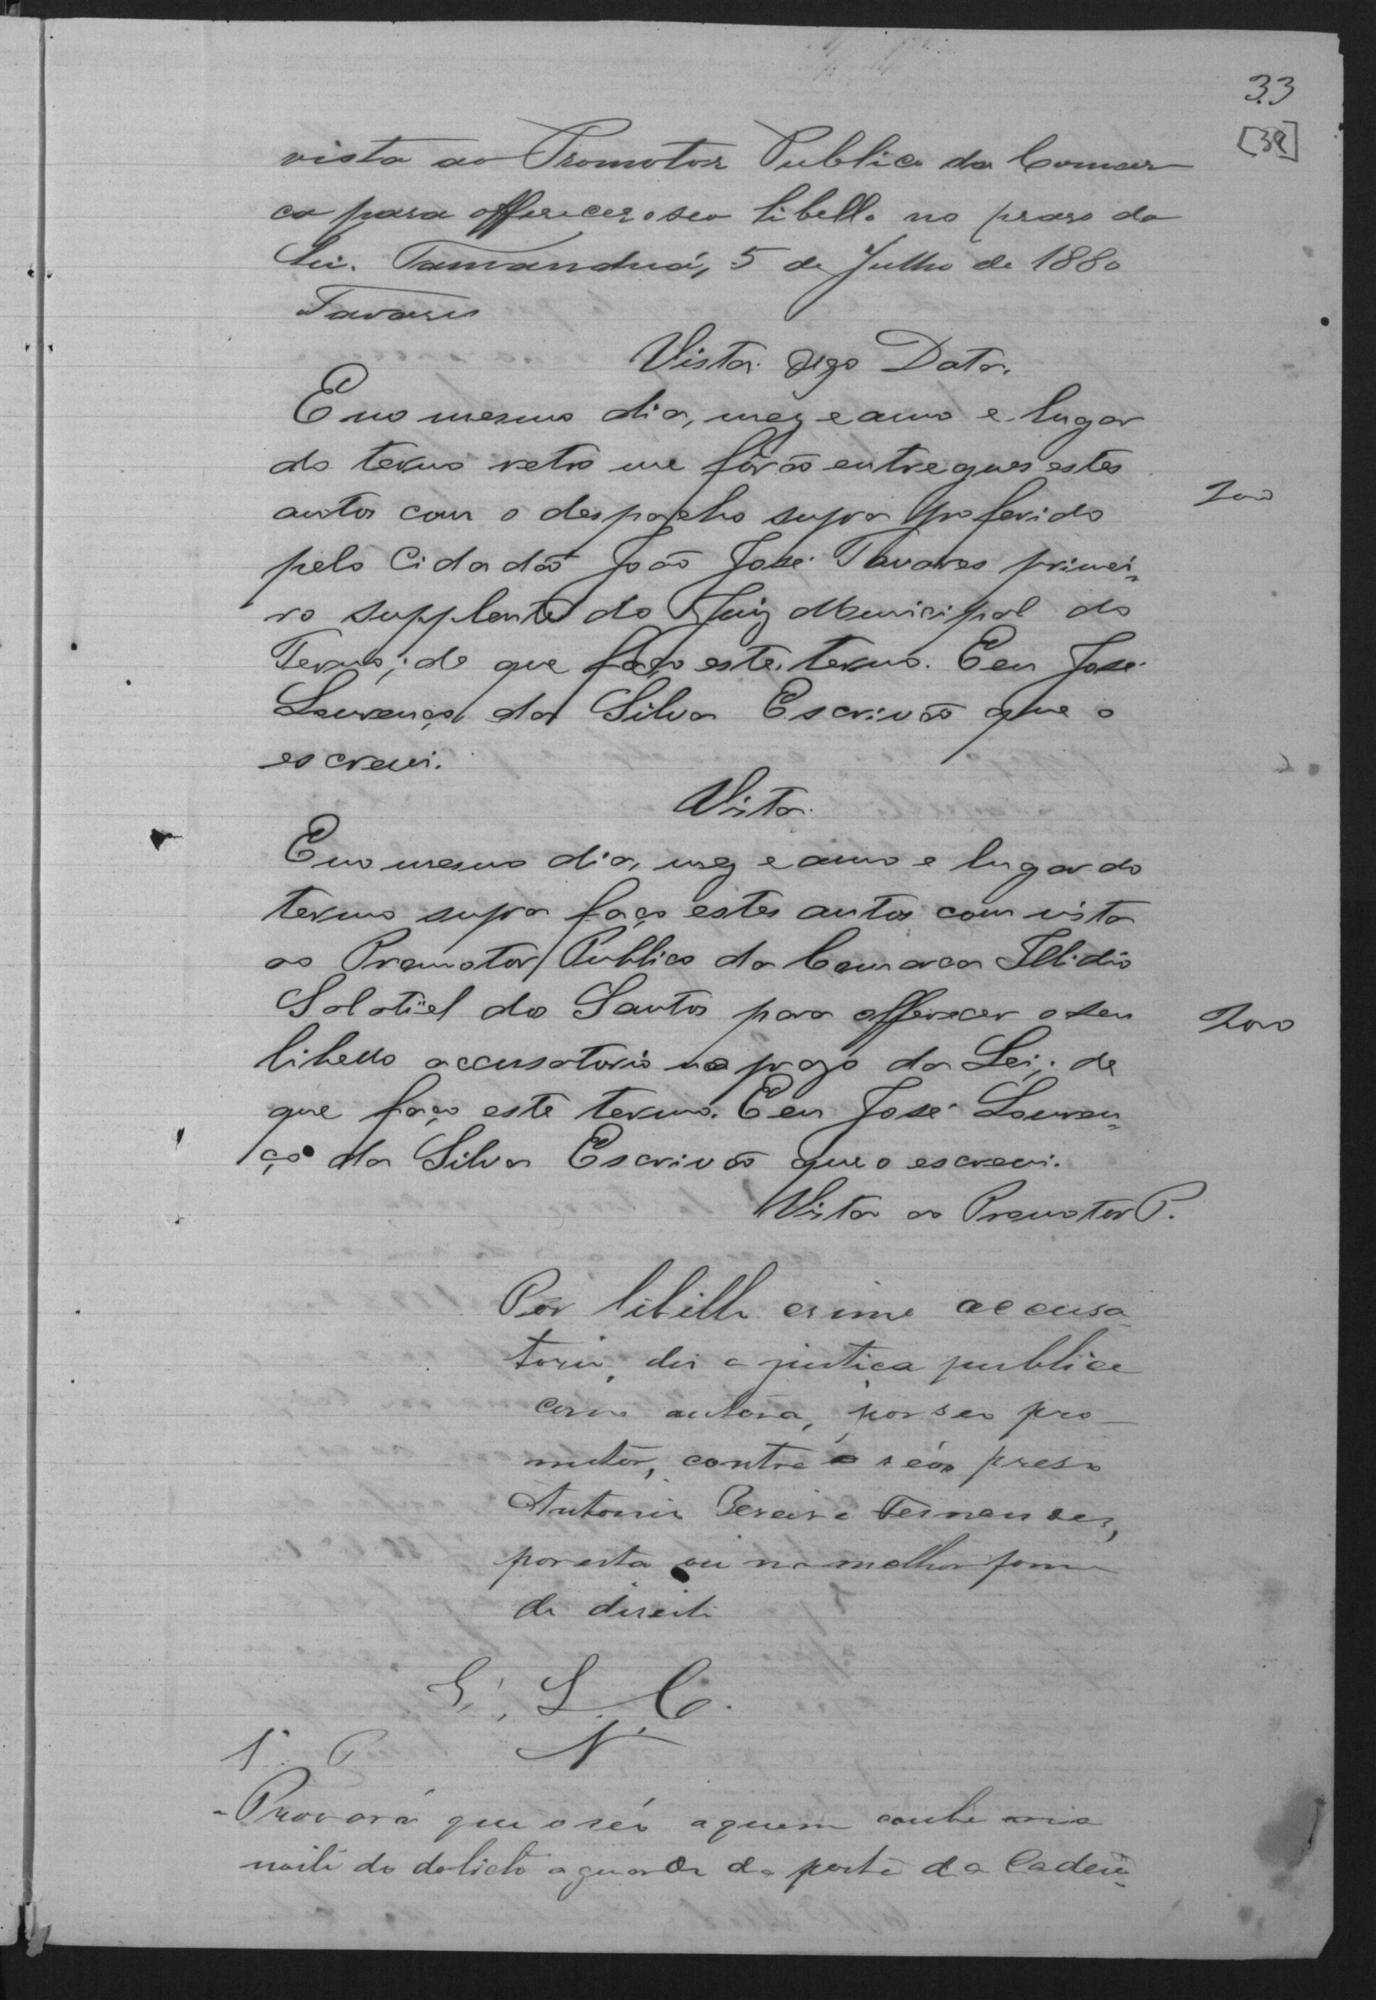 33
[38]
vista ao Promotor Publico da Comar-
ca para offerecer o seu libello no praso da
Lei. Tamanduá, 5 de Julho de 1880
Tavares
Vista digo Data.
E no mesmo dia, mez e anno e lugar
do termo retro me fôrão entregues estes
autos com o despacho supra proferido
200
pelo Cidadão João José Tavares primei-
ro supplente do Juiz Municipal do
Termo; do que faço este termo. E eu José
Lourenço da Silva Escrivão que o
escrevi.
Vista.
E no mesmo dia, mez e anno e lugar do
termo supra faço estes autos com vista
ao Promotor Publico da Comarca Illidio
Salatiel do Santos para offerecer o seu
libello accusatorio no prazo da Lei; de
que faço este termo. E eu José Louren-
ço da Silva Escrivão que o escrevi.
Vista ao Promotor P.
Por libello crime accusa-
torio, diz a justiça publica
como autora, por seo pro-
motor, contra o réo preso
Antonio Pereira Fernandes,
por esta ou na melhor forma
de direito
E. S. C.
N.
1º P
Provará que o réo a quem coube na
noite do delicto a guarda da porta da Cadeia